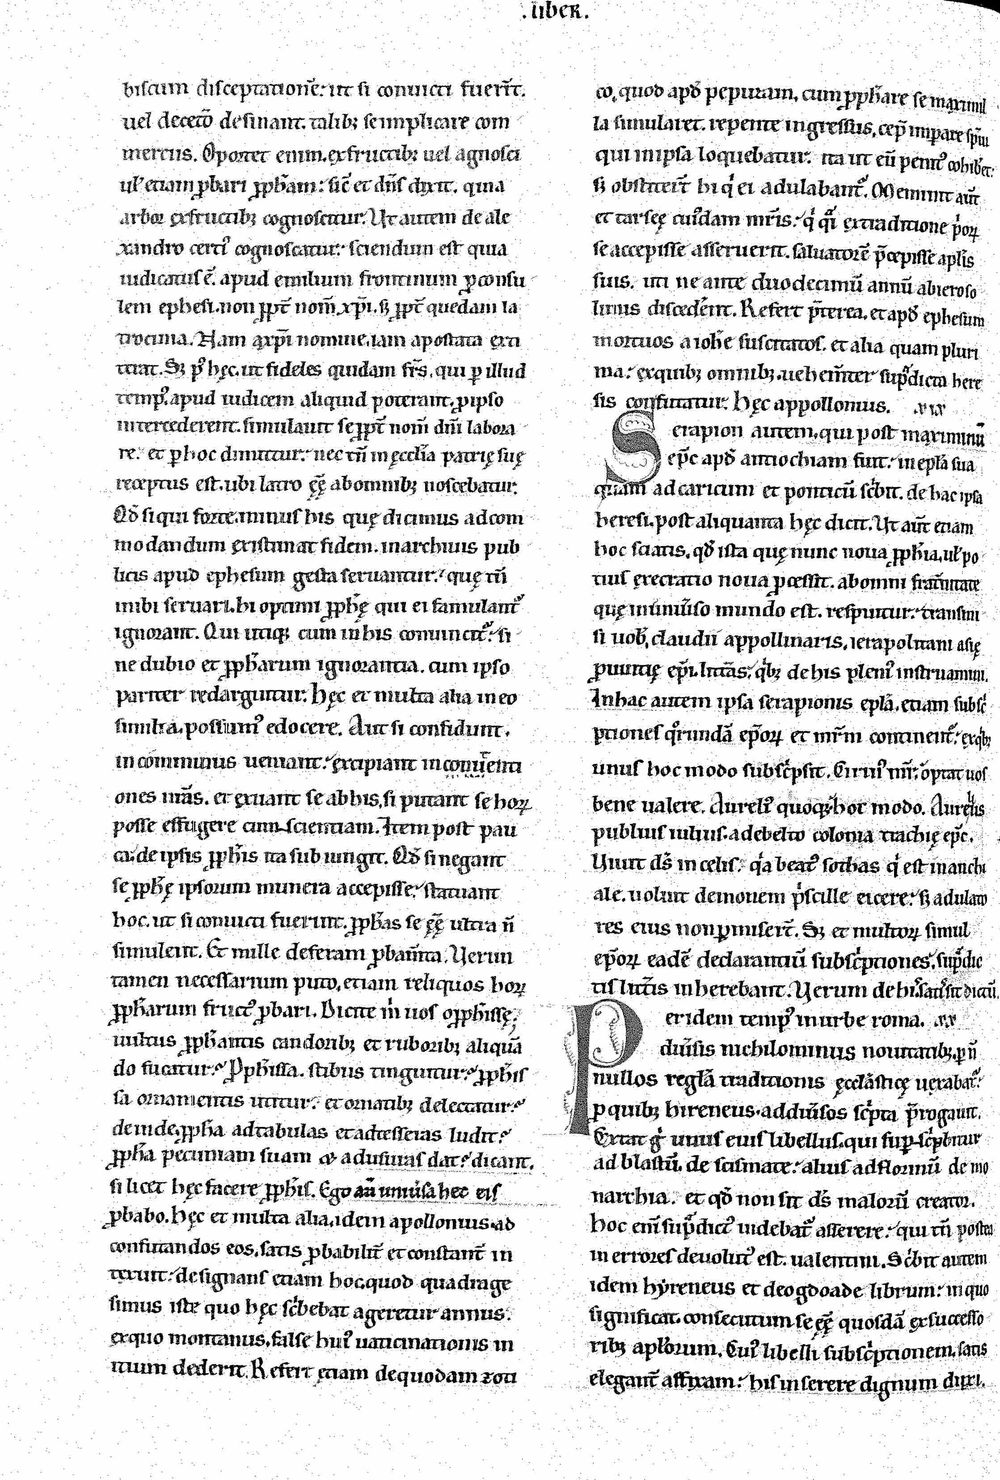 .liber.
biscum disceptationē: ut si conuicti fuerīt.
uel decetō desinant. talibꝫ se implicare com
mertiis. Oportet enim. ex fructibꝫ uel agnosci
ul̄ etiam ꝓbari ꝓpħam: sic̄ et dn̄s dixit. quia
arbor ex fructibꝫ cognoscitur. Ut autem de ale
xandro certi᷒ cognoscatur: sciendum est quia
iudicatus ē. apud emilium frontinum ꝓconsu
lem ephesi. non ꝓpt̄ nom̄ xp̄i. sꝫ ꝓpt̄ quedam la
trocinia. Nam a xp̄i nomine, iam apostata exti
terat. Sꝫ p᷒ hęc. ut fideles quidam fr̄s, qui ꝑ illud
temp᷒. apud iudicem aliquid poterant. ꝓ ipso
intercederent. simulauit se ꝓpt̄ nom̄ dn̄i labora
re. et ꝑ hoc dimittitur: nec tn̄ in ęcclīa patrię suę
receptus est. ubi latro ęę̄ ab omnibꝫ noscebatur.
Qd̄ si qui forte. minus his quę dicimus adcom
modandum existimat fidem. in archiuis pub
licis apud ephesum gesta seruantur: quę tn̄
inibi seruari. hi optimi ꝓpħę qui ei famulant᷒
ignorant. Qui utiqꝫ cum in his conuincit᷒: si
ne dubio et ꝓpħarum ignorantia. cum ipso
pariter redarguitur. Hęc et multa alia in eo
similia. possum᷒ edocere. Aut si confidunt.
in cominus ueniant: excipiant in conuenti
ones nr̄as. et exuant se ab his, si putant se horꝝ
posse effugere conscientiam. Item post pau
ca: de ipsis ꝓpħis ita subiungit. Qd̄ si negant
se ꝓpħę ipsorum munera accepisse: statuant
hoc. ut si conuicti fuerint. ꝓpħas se ęę̄ ultra n̄
simulent. Et mille deferam ꝓbam̄ta. Uerum
tamen necessarium puto, etiam reliquos horꝝ
ꝓpħarum fruct᷒ ꝓbari. Dicite m̄ uos o ꝓpħissę:
uultus ꝓpħantis candoribꝫ et ruboribꝫ aliquā
do fucatur: Ꝓpħissa. stibiis tinguitur: ꝓpħis
sa ornamentis utitur: et ornatibꝫ delectatur:
deinde. ꝓpħa ad tabulas et ad tesseras ludit:
ꝓpħa pecuniam suam ad usuras dat: dicant.
si licet hęc facere ꝓpħis. Ego aū uniūsa hec eis
ꝓbabo. Hęc et multa alia, idem apollonius. ad
confutandos eos, satis ꝓbabilit̄ et constant̄ in
texuit: designans etiam hoc, quod quadrage
simus iste quo hęc sc̄bebat ageretur annus.
ex quo montanus, false hui᷒ uaticinationis in
itium dederit. Refert etiam de quodam zoti
co, quod apd̄ pepuzam, cum ꝓpħare se maximil
la simularet. repente ingressus, cep̄ impare sp̄ui
qui in ipsa loquebatur: ita ut eū penit᷒ cohib̄et:
sꝫ obstiterīt hi qͥ ei adulabant᷒. Meminit aūt
et tarseę cui᷒dam mr̄is: qͥ qͣi ex traditione pͥorꝝ
se accepisse asseruerit. saluatorē p̄cepisse apl̄is
suis. uti ne ante duodecimū annū ab ieroso
limis disced̄ent. Refert p̄terea, et apd̄ ephesum
mortuos a ioħe suscitatos. et alia quam pluri
ma: ex quibꝫ omnibꝫ. uehem̄ter sup̄dicta here
sis confutatur. Hęc appollonius. .xix
Serapion autem, qui post maximinū
ep̄c apd̄ antiochiam fuit: in epl̄a sua
quam ad caricum et ponticū sc̄bit. de hac ipsa
heresi. post aliquanta hęc dicit. Ut aūt etiam
hoc sciatis. qd̄ ista quę nunc noua ꝓpħia, ul̄ po
tius execratio noua ꝓcessit. ab omni frat̄nitate
quę in uniūso mundo est. respuitur: transmi
si uob̄, claudii appollinaris, ierapolitani asię
ꝓuintię ep̄i. litt̄as: qͥbꝫ de his pleni᷒ instruamini.
In hac autem ipsa serapionis epl̄a. etiam subsc̄
ptiones qͦrundā ep̄orꝝ et mr̄m continent᷒: ex qͥbꝫ
unus hoc modo subsc̄psit. Cirin᷒ mr̄: opto uos
bene ualere. Aureli᷒ quoqꝫ hoc modo. Aurelius
publius iulius. a debelto colonia trachię ep̄c.
Uiuit ds̄ in celis: qͣa beat᷒ sothas qͥ est in anchi
ale. uoluit demonem pͥscille eicere: sꝫ adulato
res eius non ꝑmiserīt. Sꝫ et multorꝝ simul
ep̄orꝝ eadē declarantiū subsc̄ptiones. sup̄dic
tis litt̄is inherebant. Uerum de his satis sit dictū.
Per idem temp᷒ in urbe roma. .xx
diūsis nichilominus nouitatibꝫ. ꝑ n̄
nullos regl̄a traditionis ęccl̄astice uexabat᷒:
ꝑ quibꝫ hireneus. aduūsos sc̄pta p̄rogauit.
Extat ḡ unus eius libellus. qui suꝑscͥbitur
ad blastū. de scismate: alius ad florinū de mo
narchia: et qd̄ non sit ds̄ malorū creator.
hoc eni̅ sup̄dict᷒ uidebat᷒ asserere: qui tn̄ postea
in errores deuolut᷒ est. ualentini. Sc̄bit autem
idem hẏreneus et de ogdoade librum: in quo
significat. consecutum se ęę̄ quosdā ex successo
ribꝫ apl̄orum. Cui᷒ libelli subsc̄ptionem. satis
elegant̄ affixam: his inserere dignum duxi.